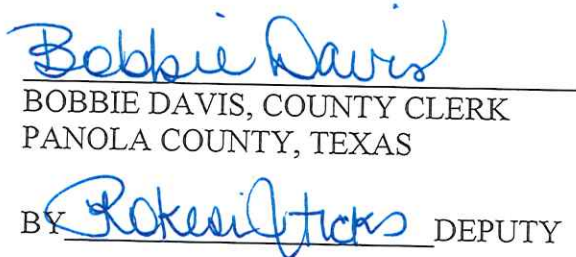 Bobbie Davis
BOBBIE DAVIS, COUNTY CLERK
PANOLA COUNTY, TEXAS
BY DEPUTY